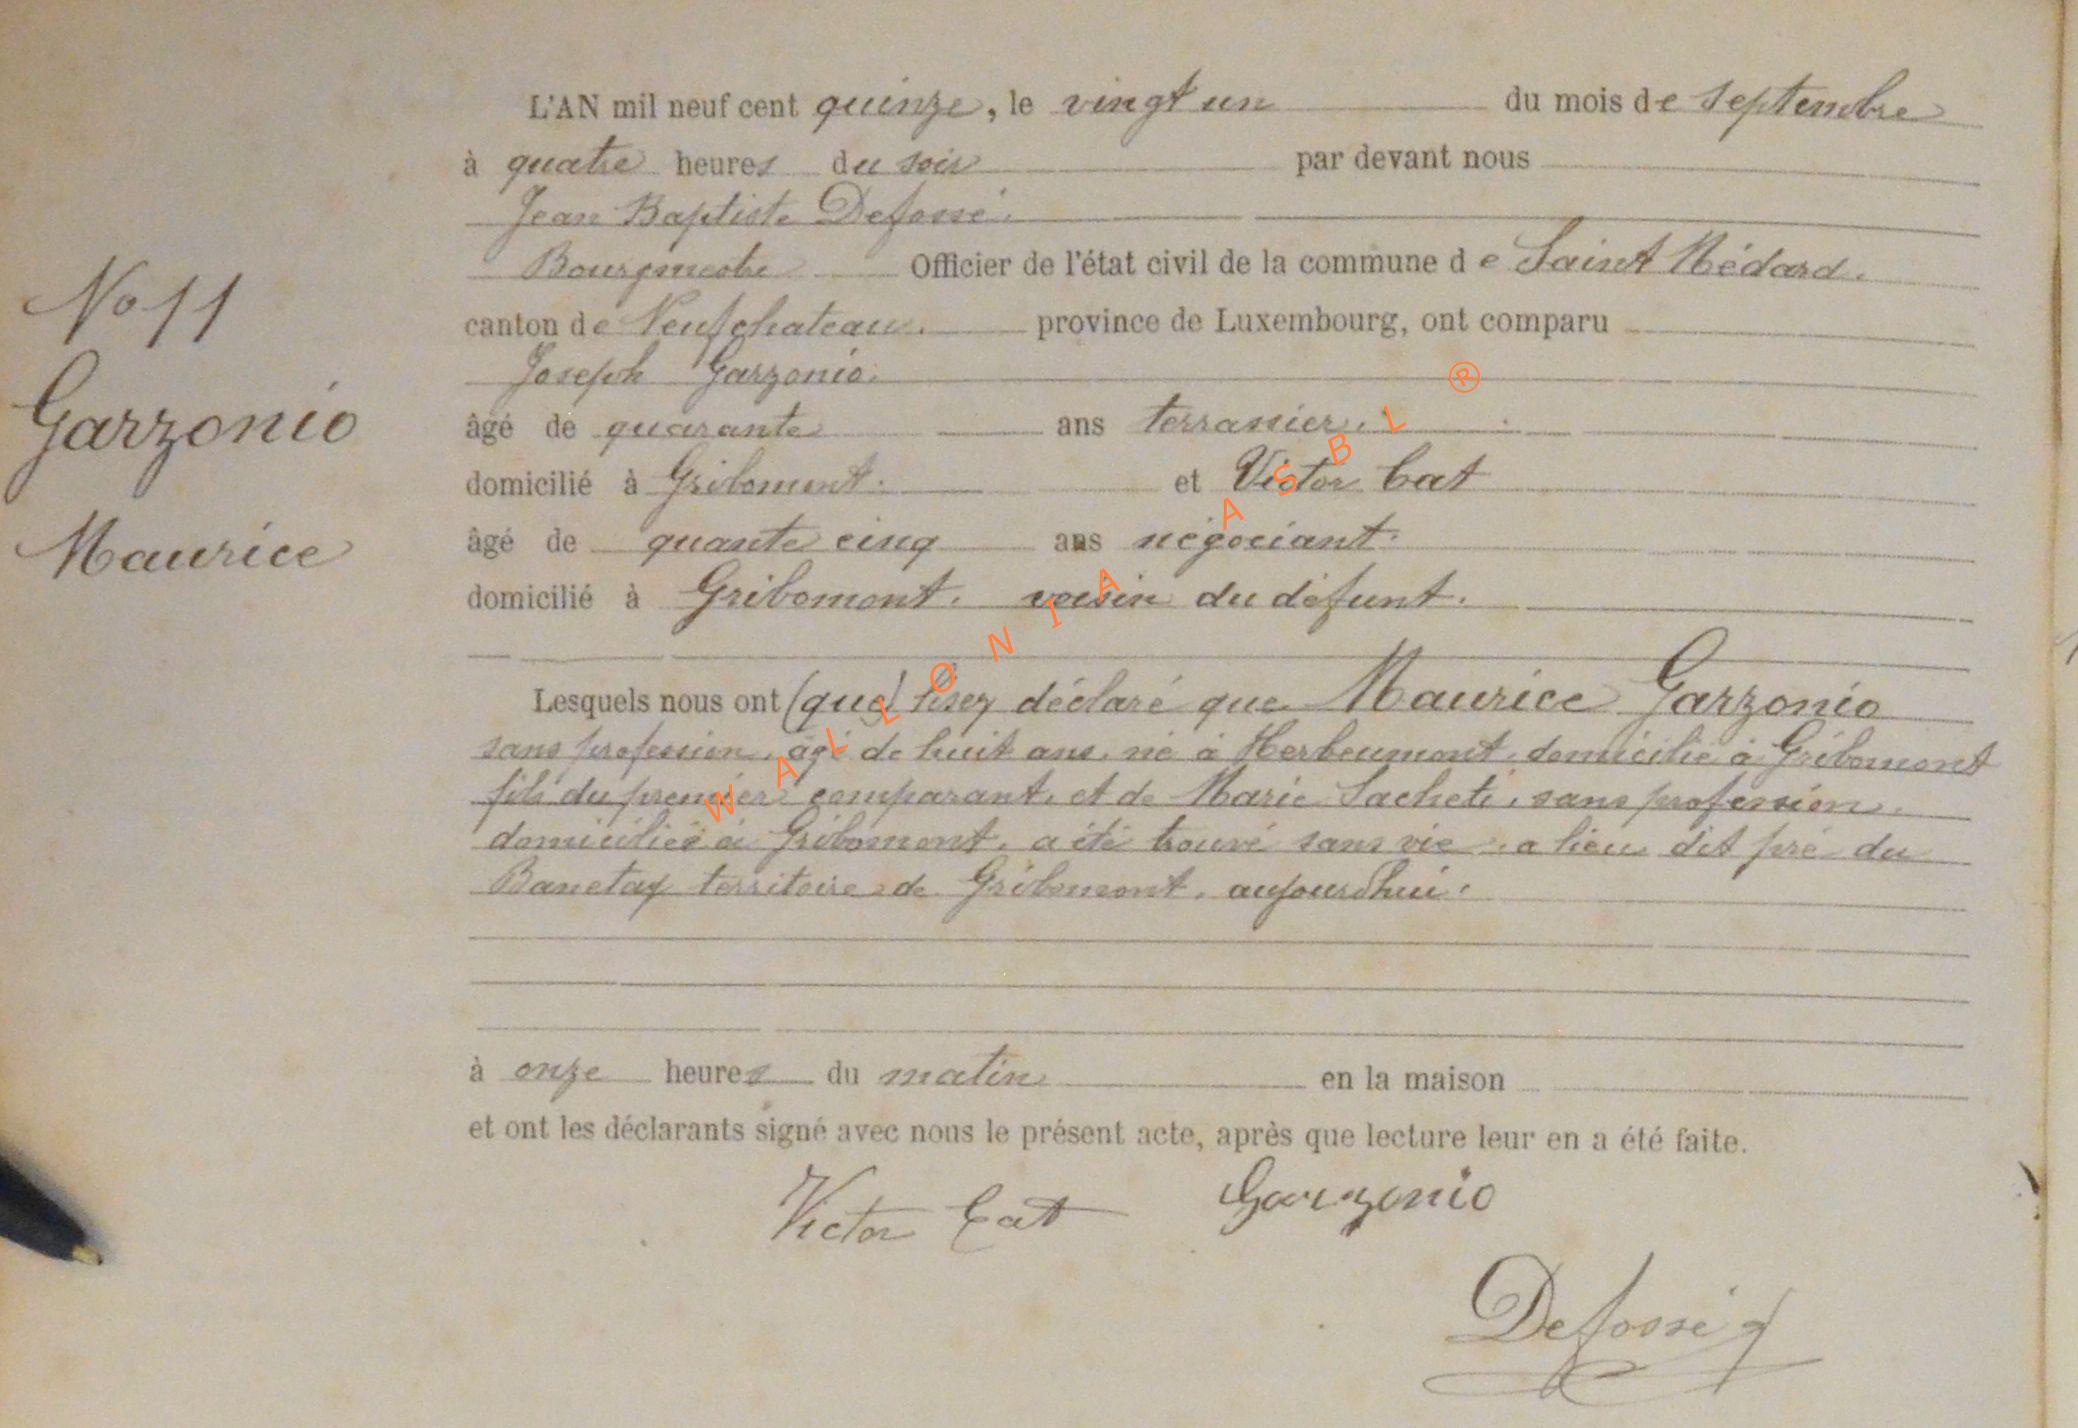 L'AN mil neuf cent quinze, le vingt un du mois de septembre
à quatre heures du soir par devant nous
Jean Baptiste Defossé.
Bourgmestre Officier de l'état civil de la commune de Saint Médard.
N° 11
canton de Neufchateau. province de Luxembourg, ont comparu
Joseph Garzonio.
Garzonio
âgé de quarante ans terrassier.
domicilié à Gribomont. et Victor Cat
Maurice
âgé de quante cinq ans négociant.
domicilié à Gribomont. voisin du défunt.
Lesquels nous ont (que) lisez déclaré que Maurice Garzonio
sans profession, âgé de huit ans, né à Herbeumont, domicilié à Gribomont
fils du premier comparant, et de Marie Sacheti, sans profession,
domiciliés à Gribomont, a été trouvé sans vie, a lieu dit pré du
Banetay territoire de Gribomont, aujourdhui.
à onze heures du matin en la maison
et ont les déclarants signé avec nous le présent acte, après que lecture leur en a été faite.
Victor Cat Garzonio
Defossé
WALLONIA ASBL ®